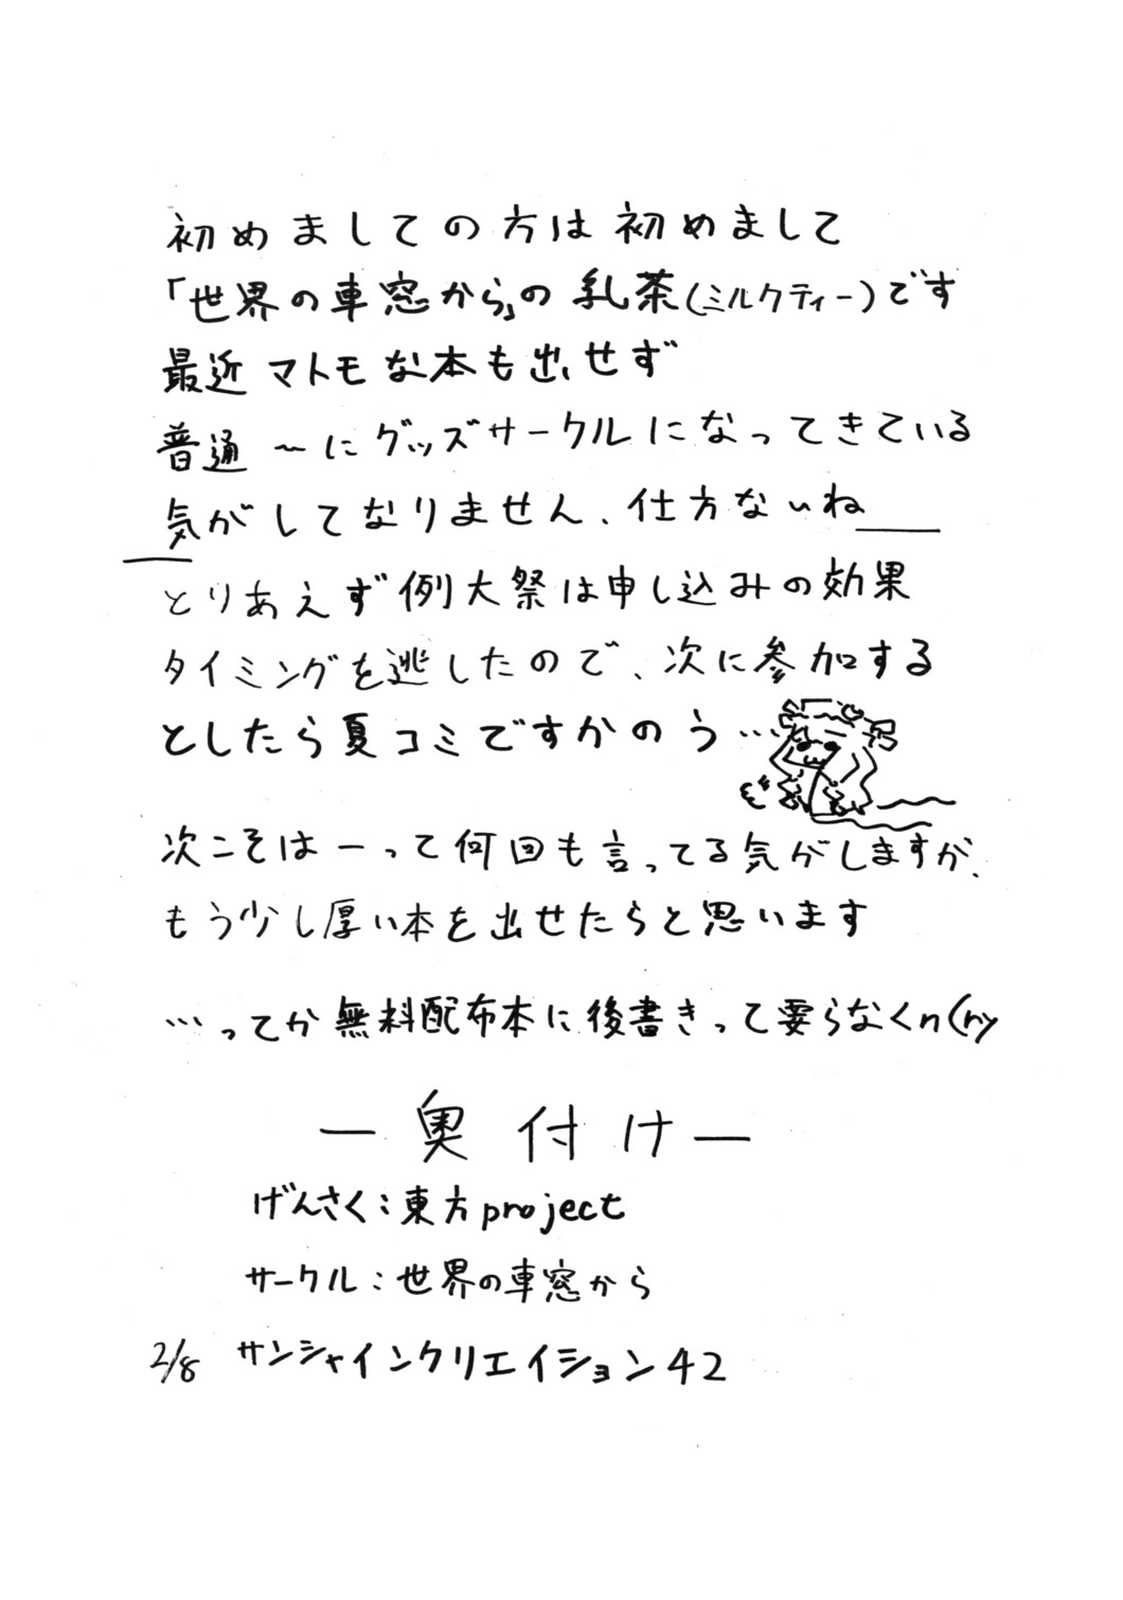 初めましての方は初めまして
「世界の車窓から」の乳茶(ミルクティー)です
最近マトモな本も出せず
普通〜にグッズサークルになってきている
気がしてなりません、仕方ないね
とりあえず例大祭は申し込みの効果
タイミングを逃したので、次に参加する
としたら夏コミですかのう…
次こそはーって何回も言ってる気がしますが、
もう少し厚い本を出せたらと思います
…ってか無料配布本に後書きって要らなくn(ry
ー奥付けー
げんさく:東方project
サークル:世界の車窓から
2/8 サンシャインクリエイション42